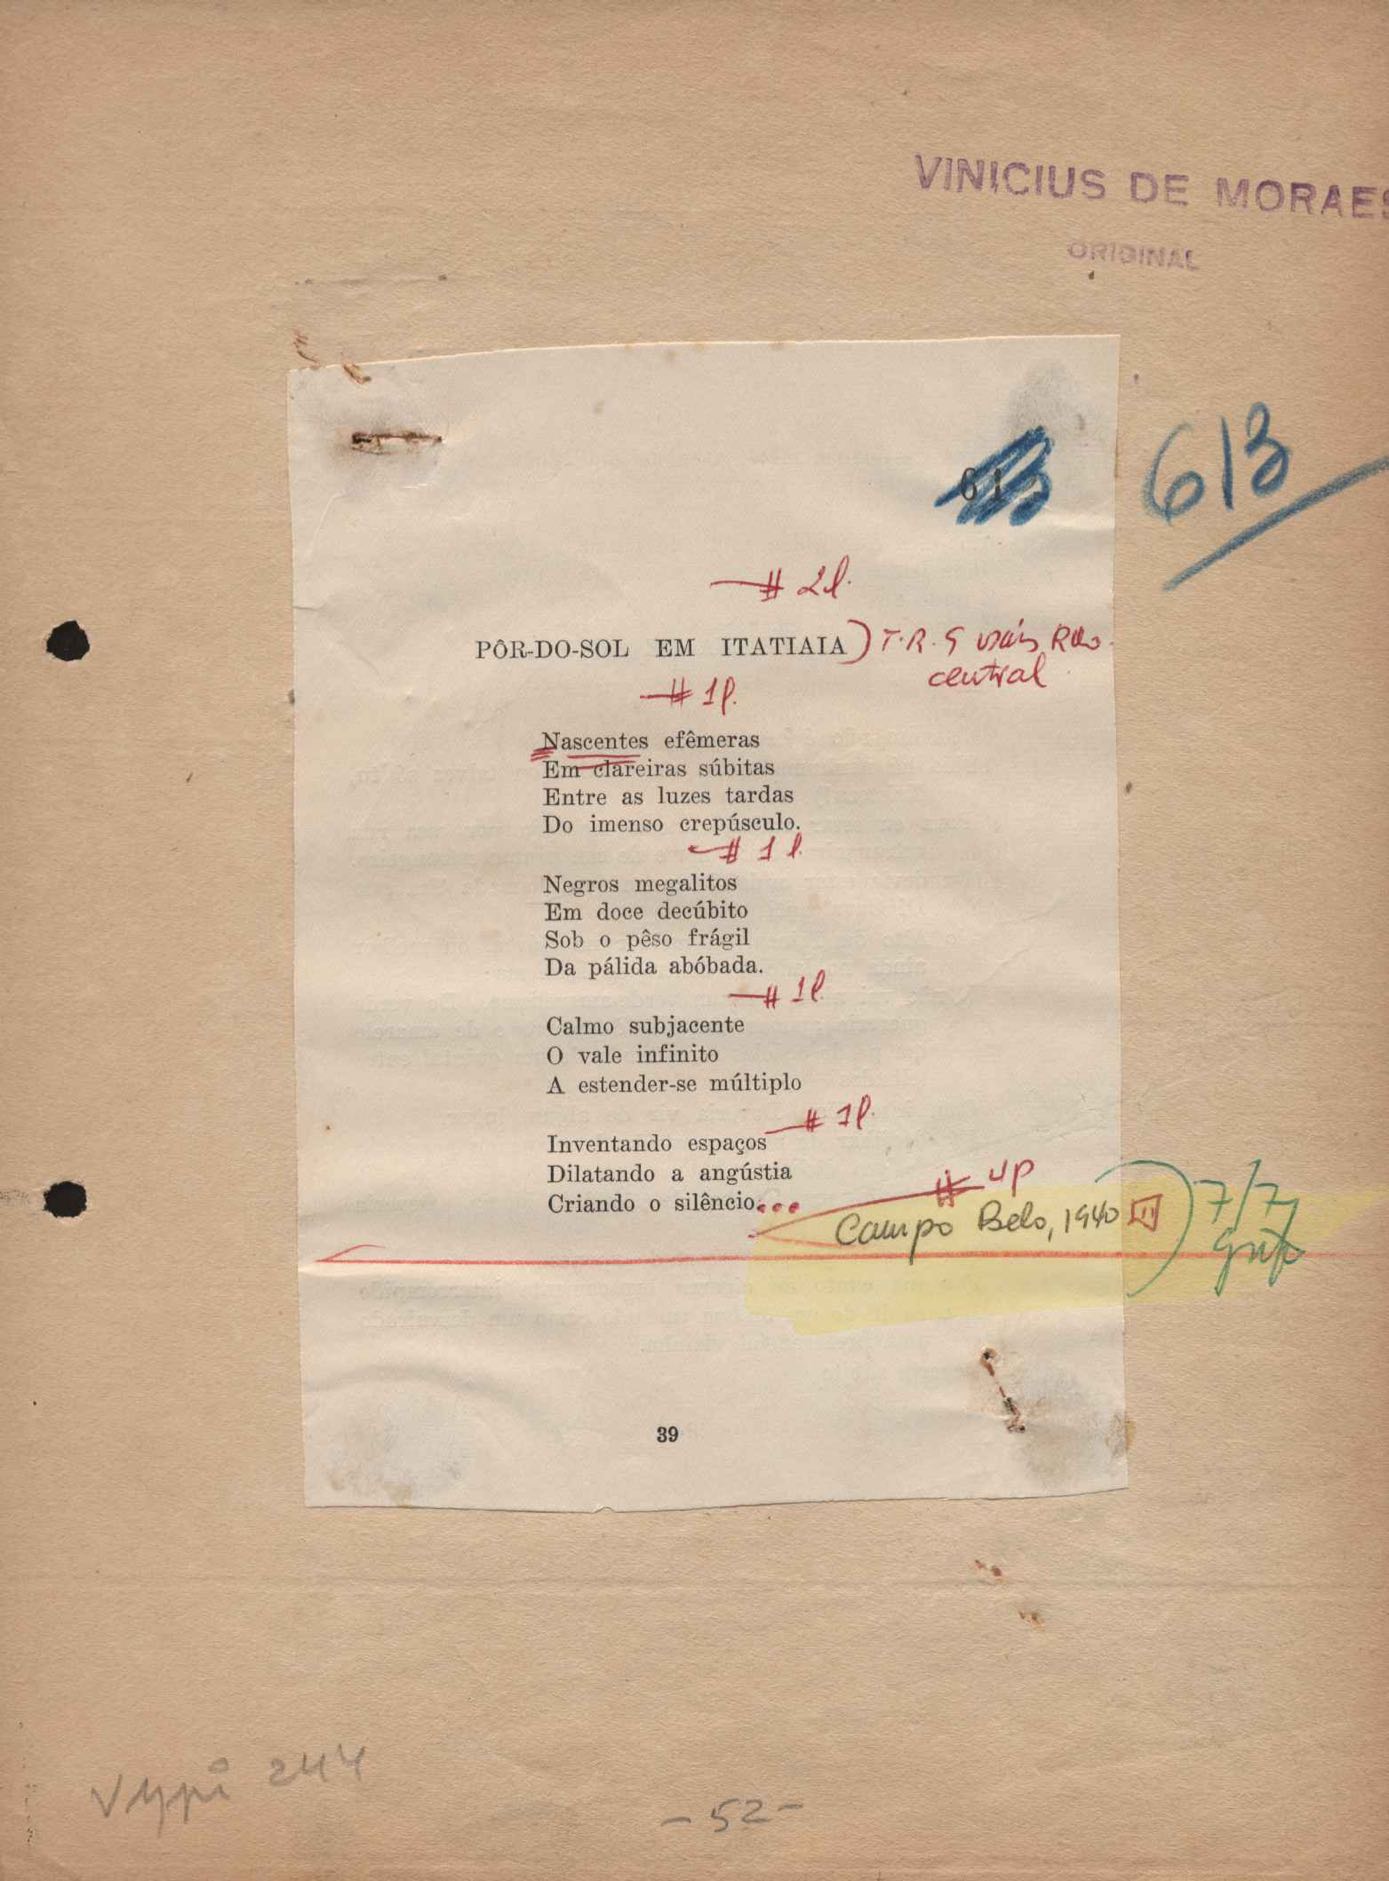 VINICIUS DE MORAES
ORIGINAL
613
# 2l.
PÔR-DO-SOL EM ITATIAIA) T.R.
central
# 1l.
Nascentes efêmeras
Em clareiras súbitas
Entre as luzes tardas
Do imenso crepúsculo.
# 1l.
Negros megalitos
Em doce decúbito
Sob o pêso frágil
Da pálida abóbada.
# 1l.
Calmo subjacente
O vale infinito
A estender-se múltiplo
# 1l.
Inventando espaços
Dilatando a angústia
Criando o silêncio...
#
Campo Belo, 1940
7/7
grifo
39
244
-52-